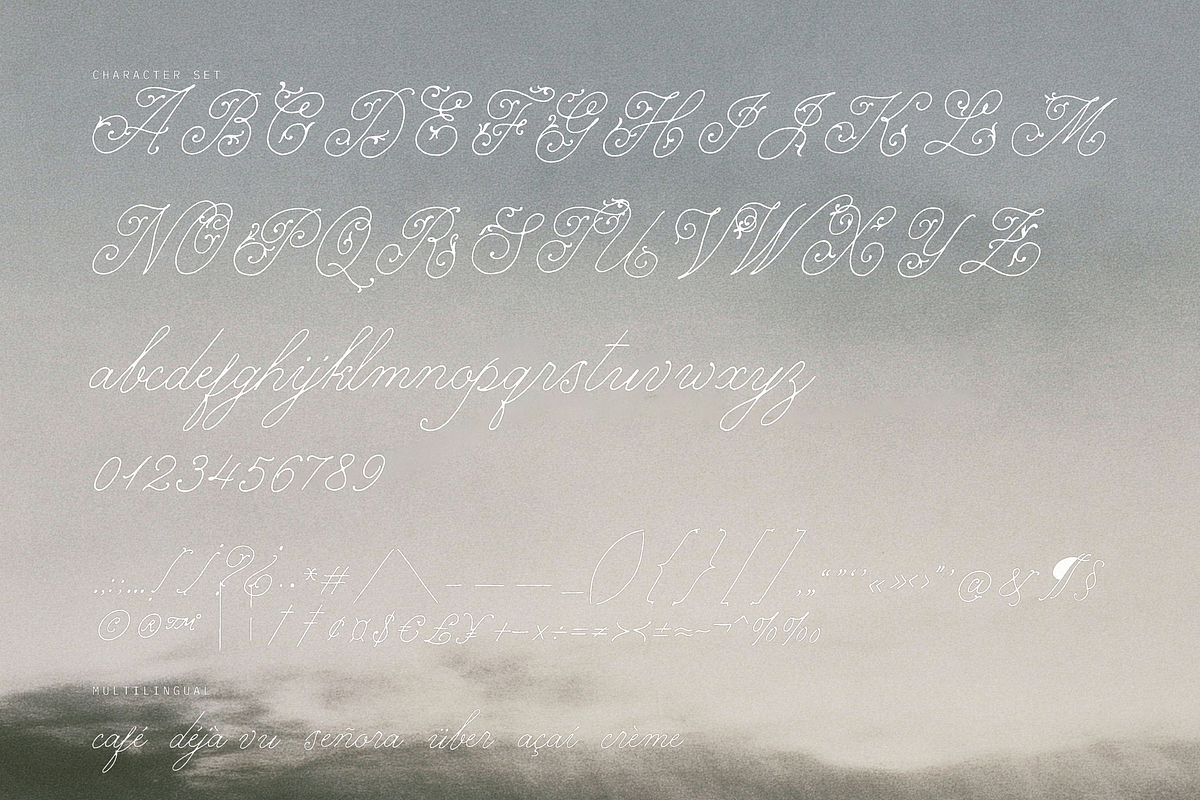 CHARACTER SET
A B C D E F G H I J K L M
N O P Q R S T U V W X Y Z
abcdefghijklmnopqrstuvwxyz
0123456789
.,:;…!¡?¿··*#/\-–—_(){}[]‚„“”‘’«»‹›"'@&¶§
©®™|¦†‡¢¤$€£¥+−×÷=≠><±≈~¬^%‰
MULTILINGUAL
café déjà vu señora über açaí crème